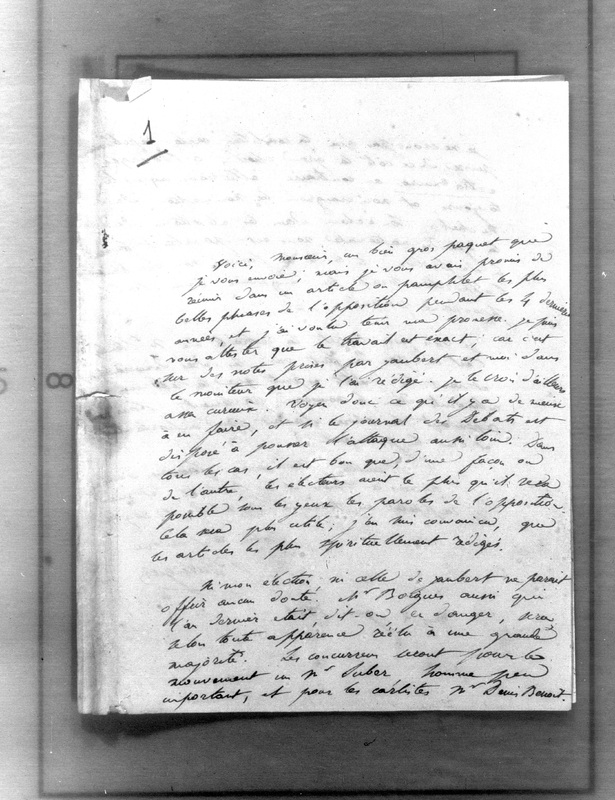 1
Voici, monsieur, un bien gros paquet que
je vous envoie; mais je vous avais promis de
réunir dans un article ou pamphlet les plus
belles phrases de l'opposition pendant les 4 dernières
années, et j'ai voulu tenir ma promesse. je puis
vous attester que le travail est exact, car c'est
sur des notes prises par jaubert et moi dans
le moniteur que je l'ai rédigé. je le crois d'ailleurs
assez curieux. Voyez donc ce qu'il y a de mieux
à en faire, et si le journal des Débats est
disposé à pousser l'attaque aussi loin. Dans
tous les cas, il est bon que, d'une façon ou
de l'autre, les électeurs aient le plus qu'il sera
possible sous les yeux les paroles de l'opposition.
Cela sera plus utile, j'en suis convaincu, que
les articles les plus spirituellement rédigés.
Ni mon élection, ni celle de jaubert ne paraît
offrir aucun doute. Mr Boigues aussi qui
l'an dernier était dit-on en danger, sera
selon toute apparence réélu à une grande
majorité. Les concurrens seront pour le
mouvement un Mr homme peu
important, et pour les carlistes Mr Denis Benoist.
8